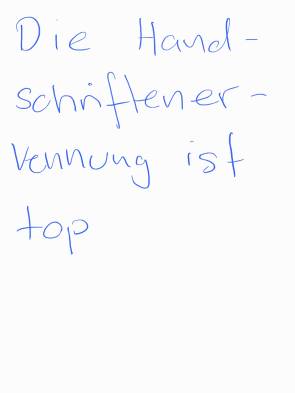 Die Hand-
schriftener-
kennung ist
top